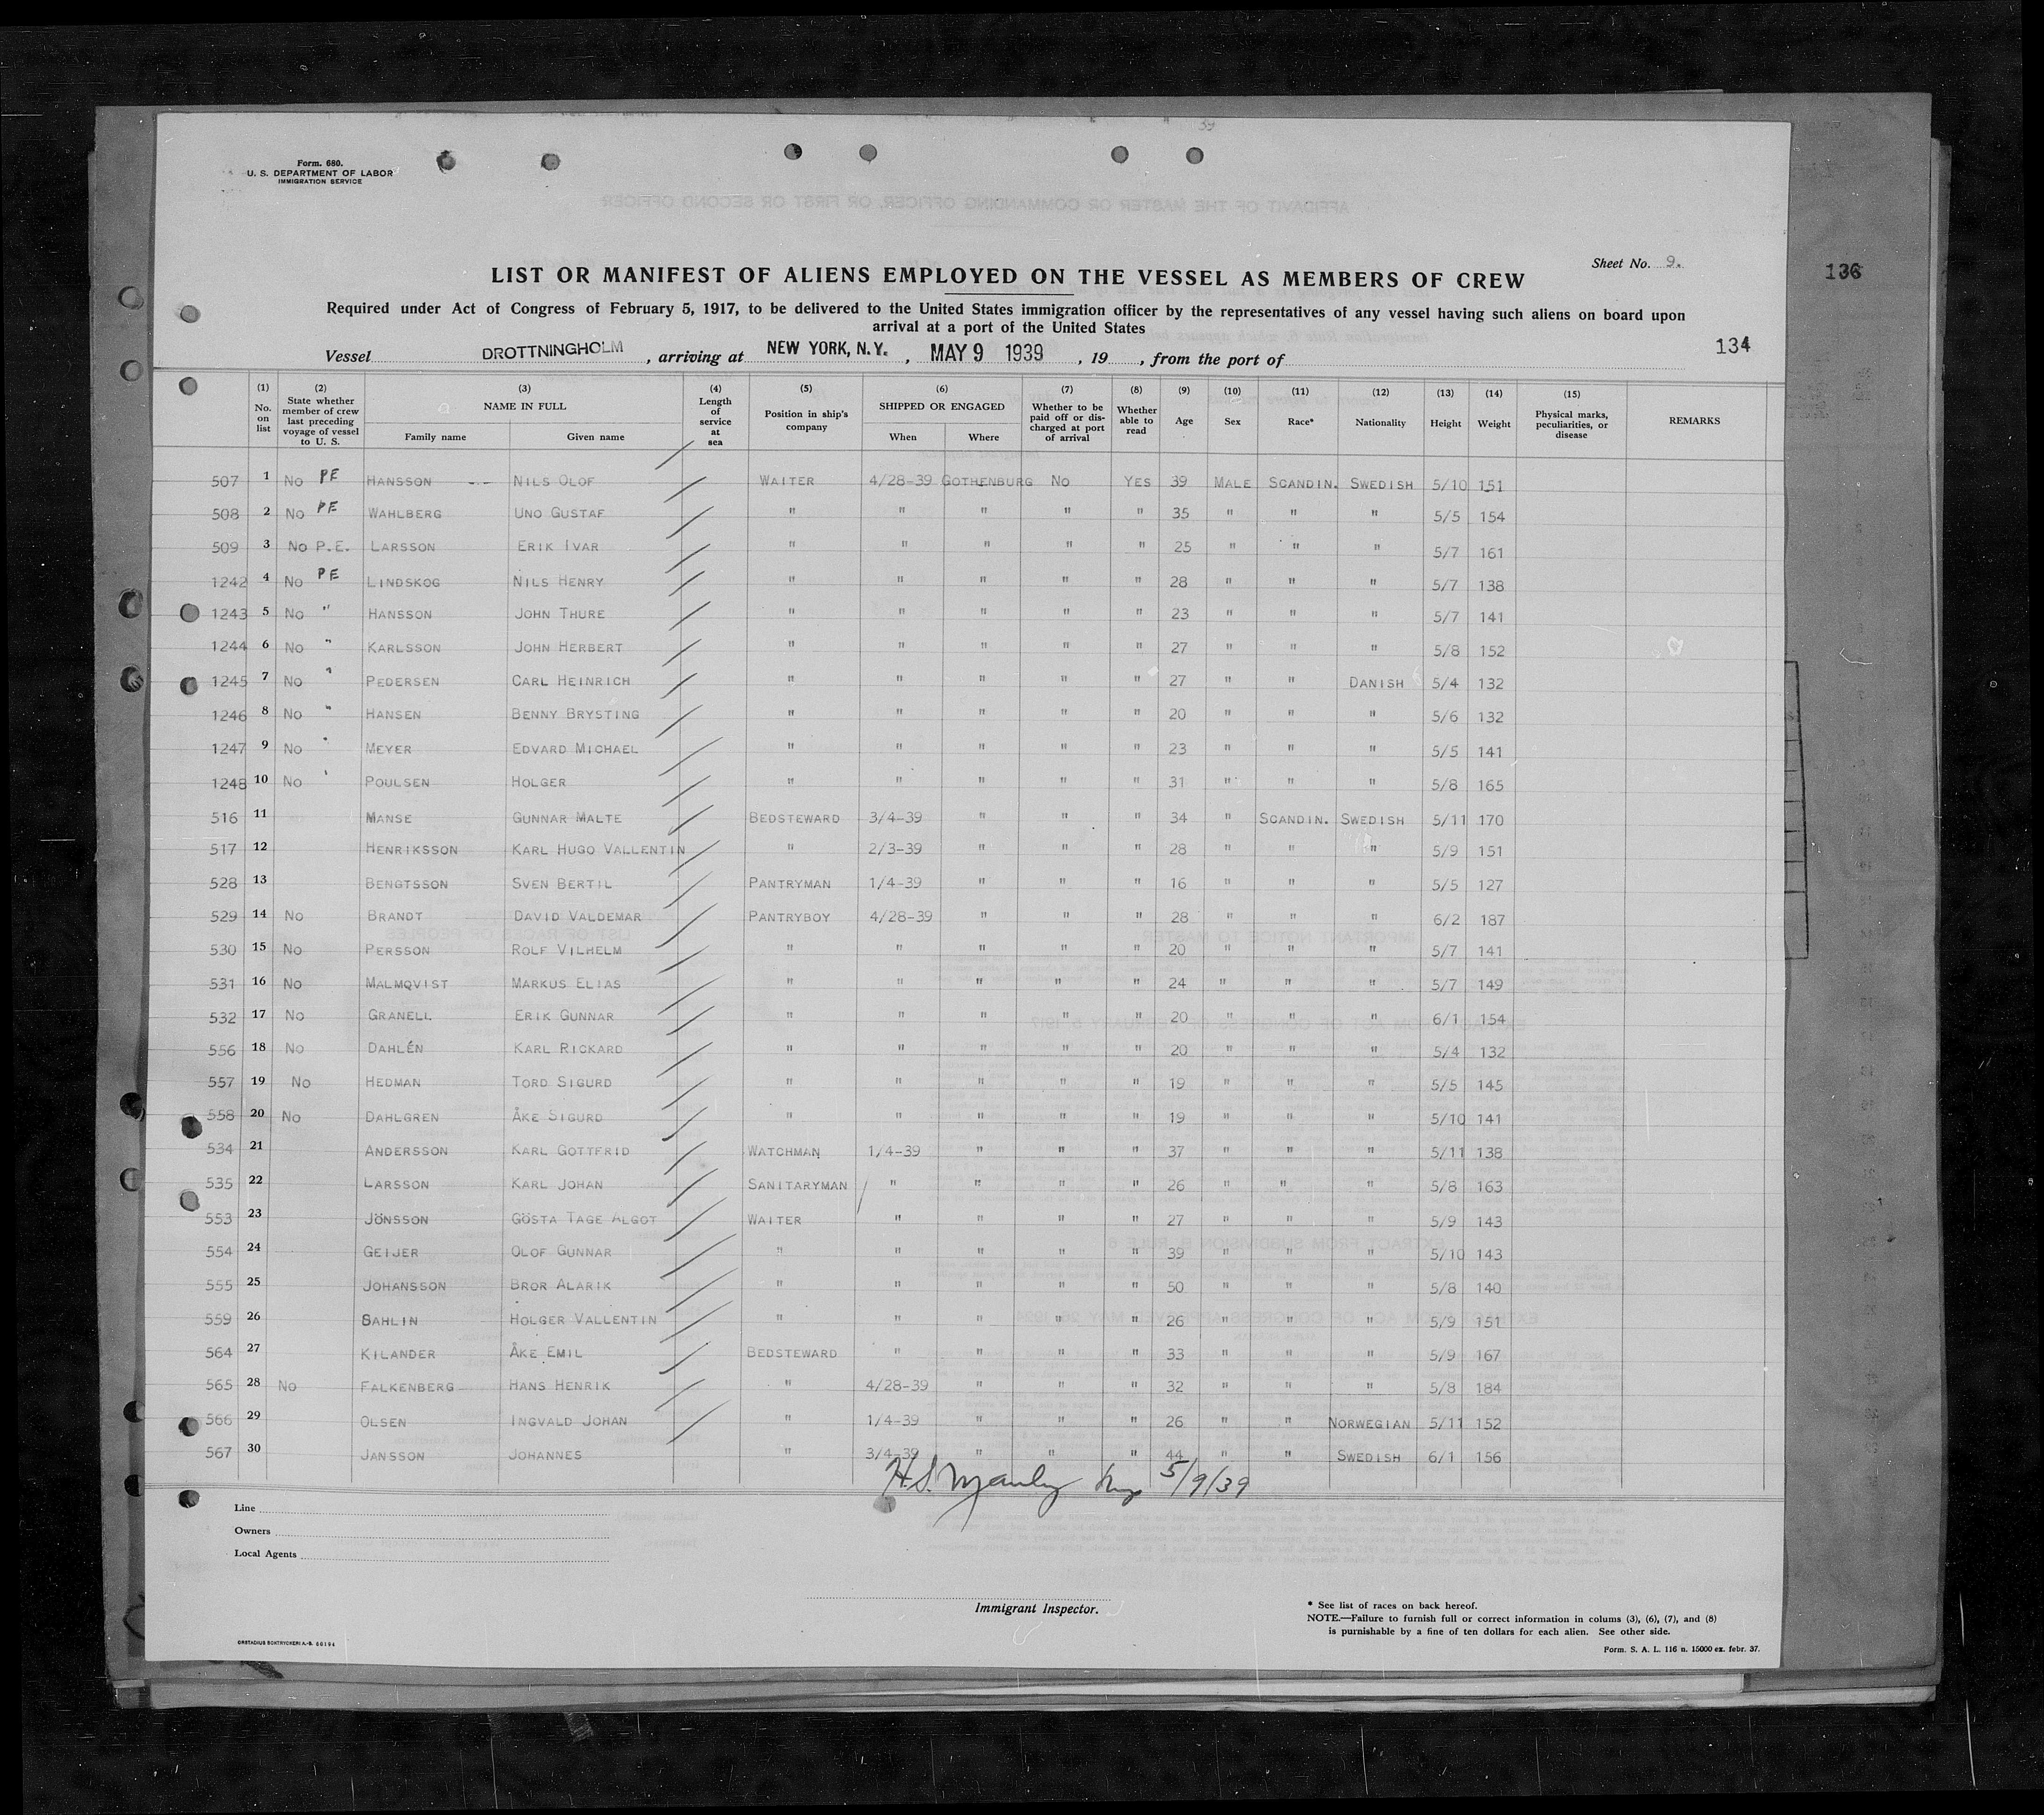 Form. 680.
U. S. DEPARTMENT OF LABOR
IMMIGRATION SERVICE
Sheet No. 9.
136
LIST OR MANIFEST OF ALIENS EMPLOYED ON THE VESSEL AS MEMBERS OF CREW
Required under Act of Congress of February 5, 1917, to be delivered to the United States immigration officer by the representatives of any vessel having such aliens on board upon
arrival at a port of the United States
134
Vessel DROTTNINGHOLM, arriving at NEW YORK, N.Y., MAY 9 1939, 19, from the port of
(1) No. on list (2) State whether member of crew last preceding voyage of vessel to U. S. (3) NAME IN FULL Family name Given name (4) Length of service at sea (5) Position in ship's company (6) SHIPPED OR ENGAGED When Where (7) Whether to be paid off or discharged at port of arrival (8) Whether able to read (9) Age (10) Sex (11) Race* (12) Nationality (13) Height (14) Weight (15) Physical marks, peculiarities, or disease REMARKS
507 1 No PE HANSSON -- NILS OLOF WAITER 4/28-39 GOTHENBURG No YES 39 MALE SCANDIN. SWEDISH 5/10 151
508 2 No PE WAHLBERG UNO GUSTAF " " " " " 35 " " " 5/5 154
509 3 No P.E. LARSSON ERIK IVAR " " " " " 25 " " " 5/7 161
1242 4 No PE LINDSKOG NILS HENRY " " " " " 28 " " " 5/7 138
1243 5 No " HANSSON JOHN THURE " " " " " 23 " " " 5/7 141
1244 6 No " KARLSSON JOHN HERBERT " " " " " 27 " " " 5/8 152
1245 7 No " PEDERSEN CARL HEINRICH " " " " " 27 " " DANISH 5/4 132
1246 8 No " HANSEN BENNY BRYSTING " " " " " 20 " " " 5/6 132
1247 9 No " MEYER EDVARD MICHAEL " " " " " 23 " " " 5/5 141
1248 10 No ' POULSEN HOLGER " " " " " 31 " " " 5/8 165
516 11 MANSE GUNNAR MALTE BEDSTEWARD 3/4-39 " " " 34 " SCANDIN. SWEDISH 5/11 170
517 12 HENRIKSSON KARL HUGO VALLENTIN " 2/3-39 " " " 28 " " " 5/9 151
528 13 BENGTSSON SVEN BERTIL PANTRYMAN 1/4-39 " " " 16 " " " 5/5 127
529 14 No BRANDT DAVID VALDEMAR PANTRYBOY 4/28-39 " " " 28 " " " 6/2 187
530 15 No PERSSON ROLF VILHELM " " " " " 20 " " " 5/7 141
531 16 No MALMQVIST MARKUS ELIAS " " " " " 24 " " " 5/7 149
532 17 No GRANELL ERIK GUNNAR " " " " " 20 " " " 6/1 154
556 18 No DAHLÉN KARL RICKARD " " " " " 20 " " " 5/4 132
557 19 No HEDMAN TORD SIGURD " " " " " 19 " " " 5/5 145
558 20 No DAHLGREN ÅKE SIGURD " " " " " 19 " " " 5/10 141
534 21 ANDERSSON KARL GOTTFRID WATCHMAN 1/4-39 " " " 37 " " " 5/11 138
535 22 LARSSON KARL JOHAN SANITARYMAN " " " " 26 " " " 5/8 163
553 23 JÖNSSON GÖSTA TAGE ALGOT WAITER " " " " 27 " " " 5/9 143
554 24 GEIJER OLOF GUNNAR " " " " " 39 " " " 5/10 143
555 25 JOHANSSON BROR ALARIK " " " " " 50 " " " 5/8 140
559 26 SAHLIN HOLGER VALLENTIN " " " " " 26 " " " 5/9 151
564 27 KILANDER ÅKE EMIL BEDSTEWARD " " " " 33 " " " 5/9 167
565 28 No FALKENBERG HANS HENRIK " 4/28-39 " " " 32 " " " 5/8 184
566 29 OLSEN INGVALD JOHAN " 1/4-39 " " " 26 " " NORWEGIAN 5/11 152
567 30 JANSSON JOHANNES " 3/4-39 " " " 44 " " SWEDISH 6/1 156
H.S. Manly 5/9/39
Line
Owners
Local Agents
Immigrant Inspector.
* See list of races on back hereof.
NOTE.—Failure to furnish full or correct information in colums (3), (6), (7), and (8)
is punishable by a fine of ten dollars for each alien. See other side.
Form. S. A. L. 116 n. 15000 ex. febr. 37.